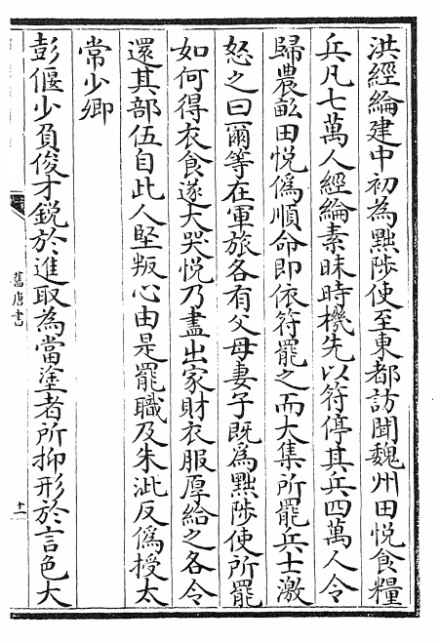 洪經綸建中初為黜陟使至東都訪聞魏州田悅食糧
兵凡七萬人經綸素昧時機先以符停其兵四萬人令
歸農畝田悅偽順命即依符罷之而大集所罷兵士激
怒之曰爾等在軍旅各有父母妻子既為黜陟使所罷
如何得衣食遂大哭悅乃盡出家財衣服厚給之各令
還其部伍自此人堅叛心由是罷職及朱泚反偽授太
常少卿
彭偃少負俊才鋭於進取為當塗者所抑形於言色大
舊唐書
十一